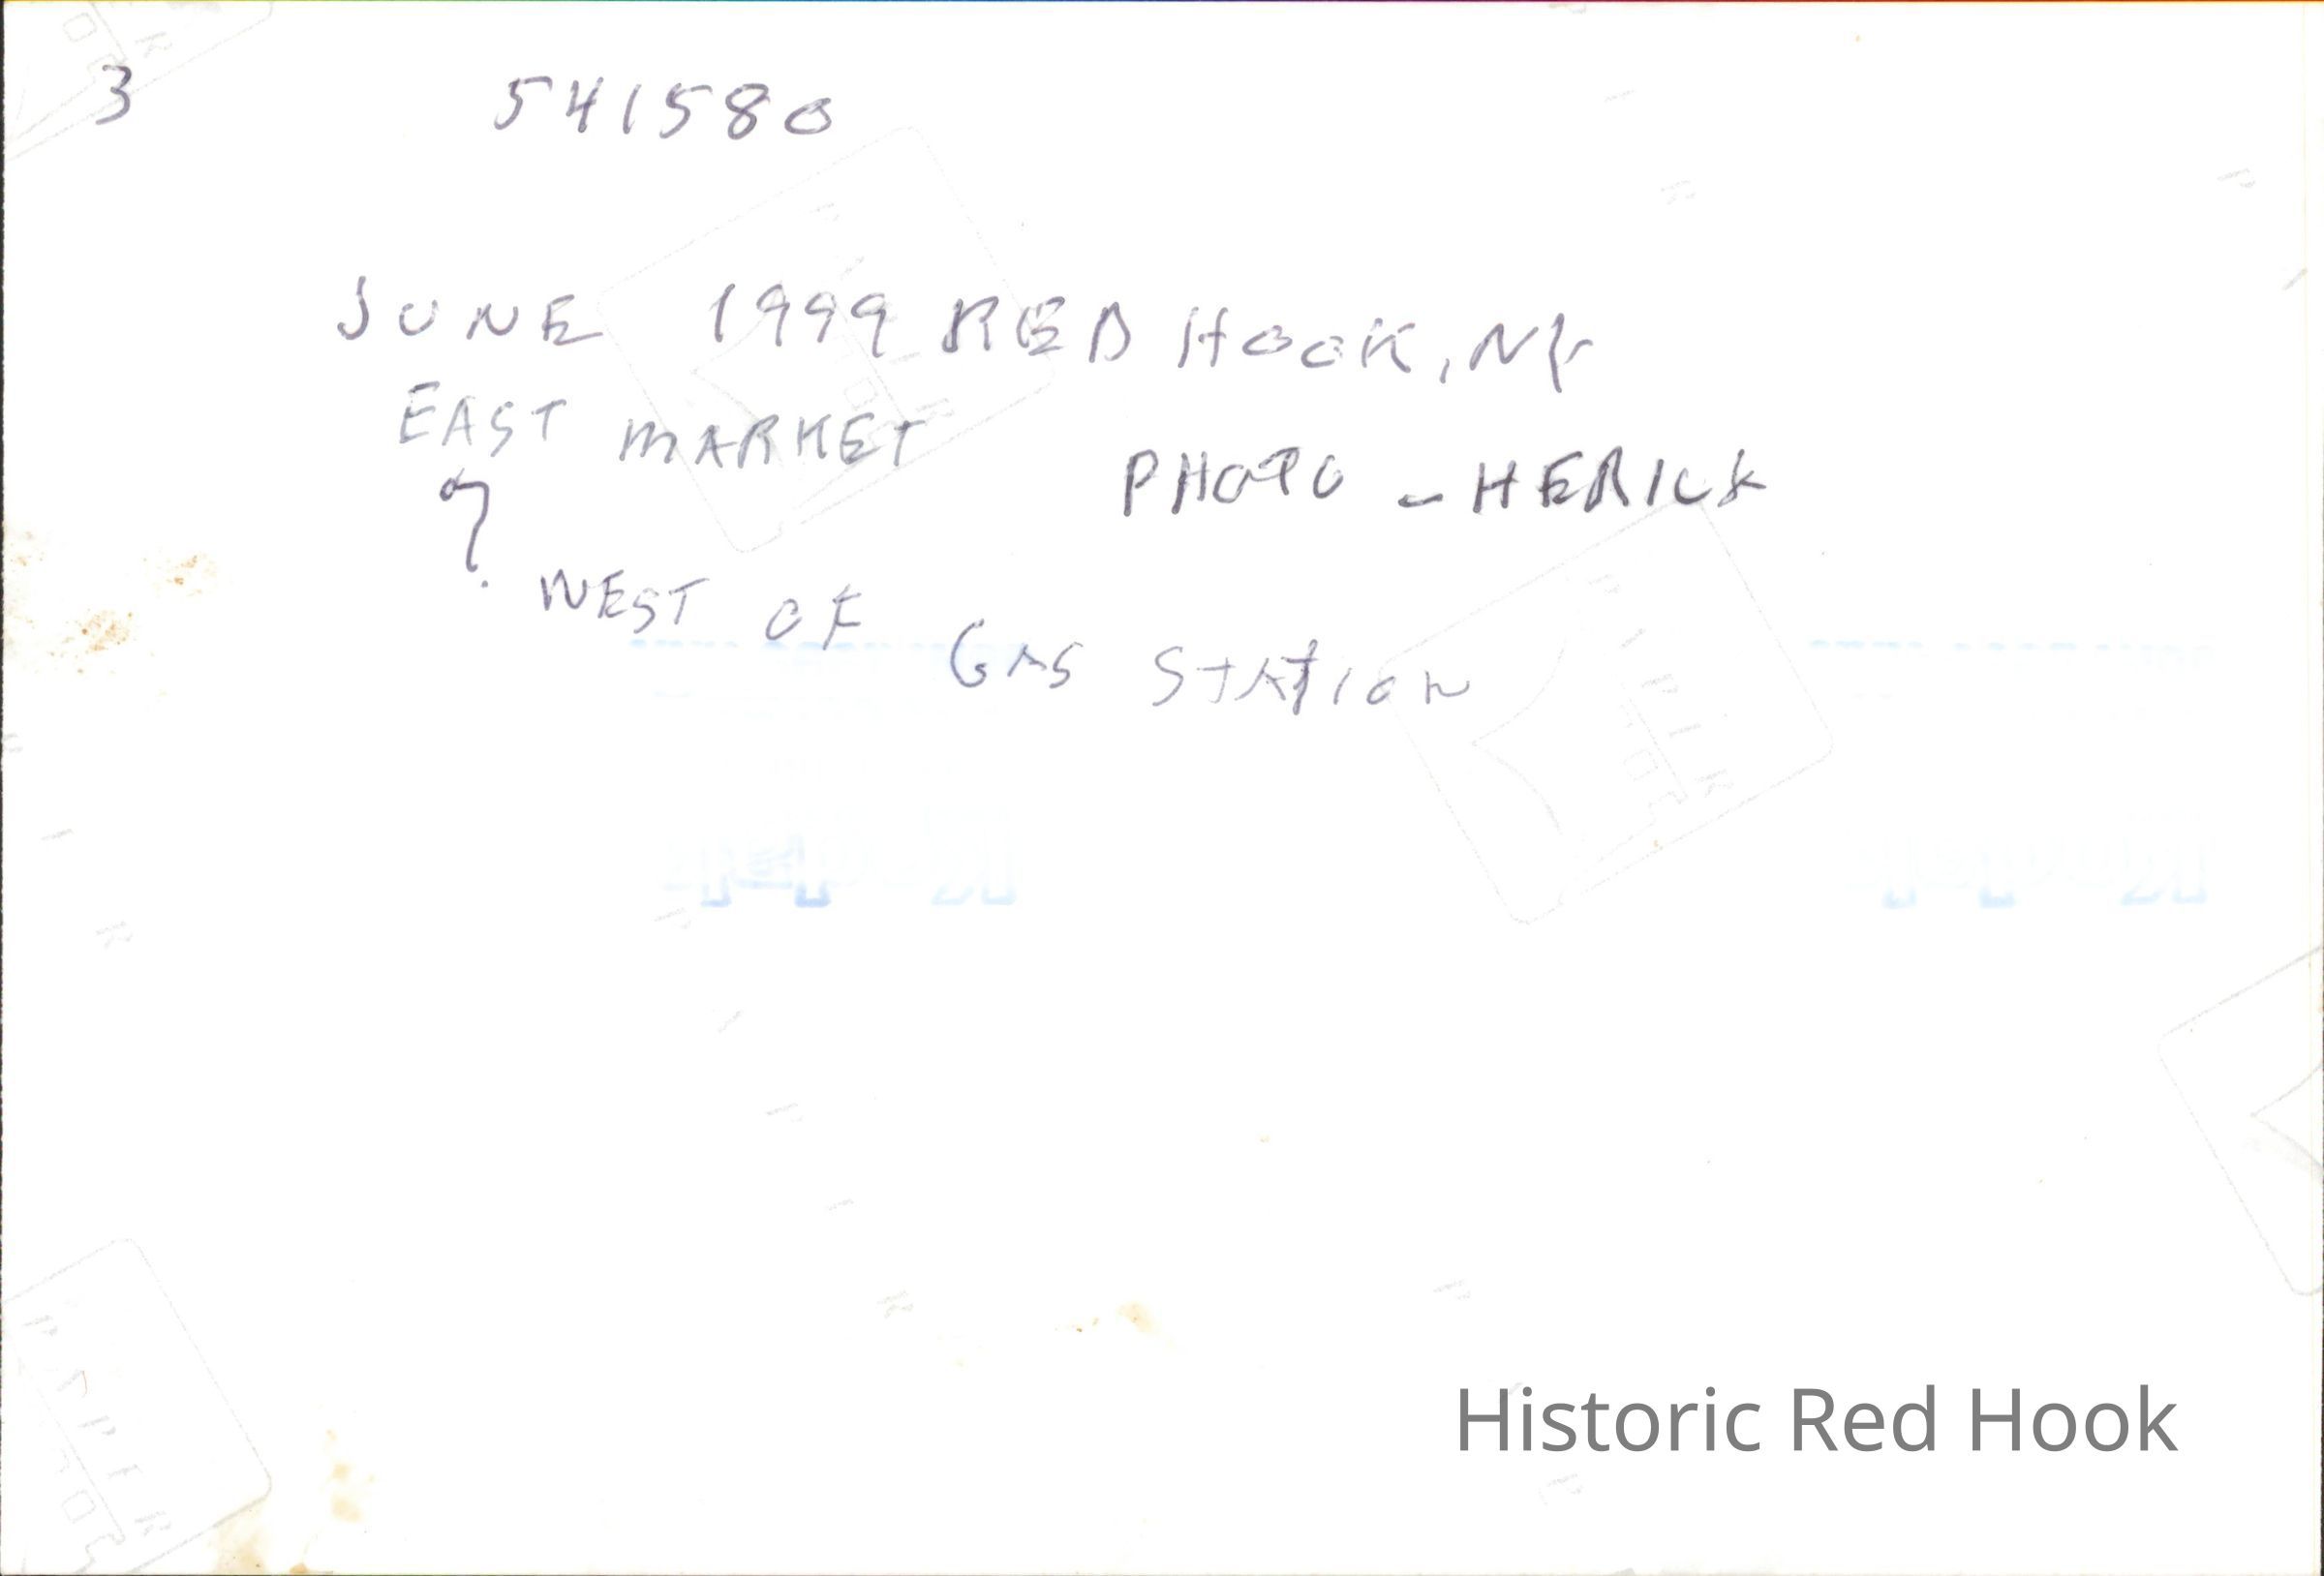 3 541580
JUNE 1999 RED HOOK, NY
EAST MARKET
PHOTO - HERICK
?
WEST OF GAS STATION
Historic Red Hook